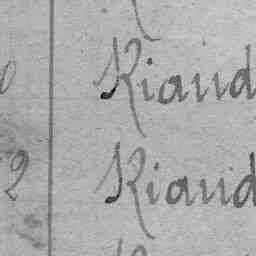 0 Riaud
2 Riaud